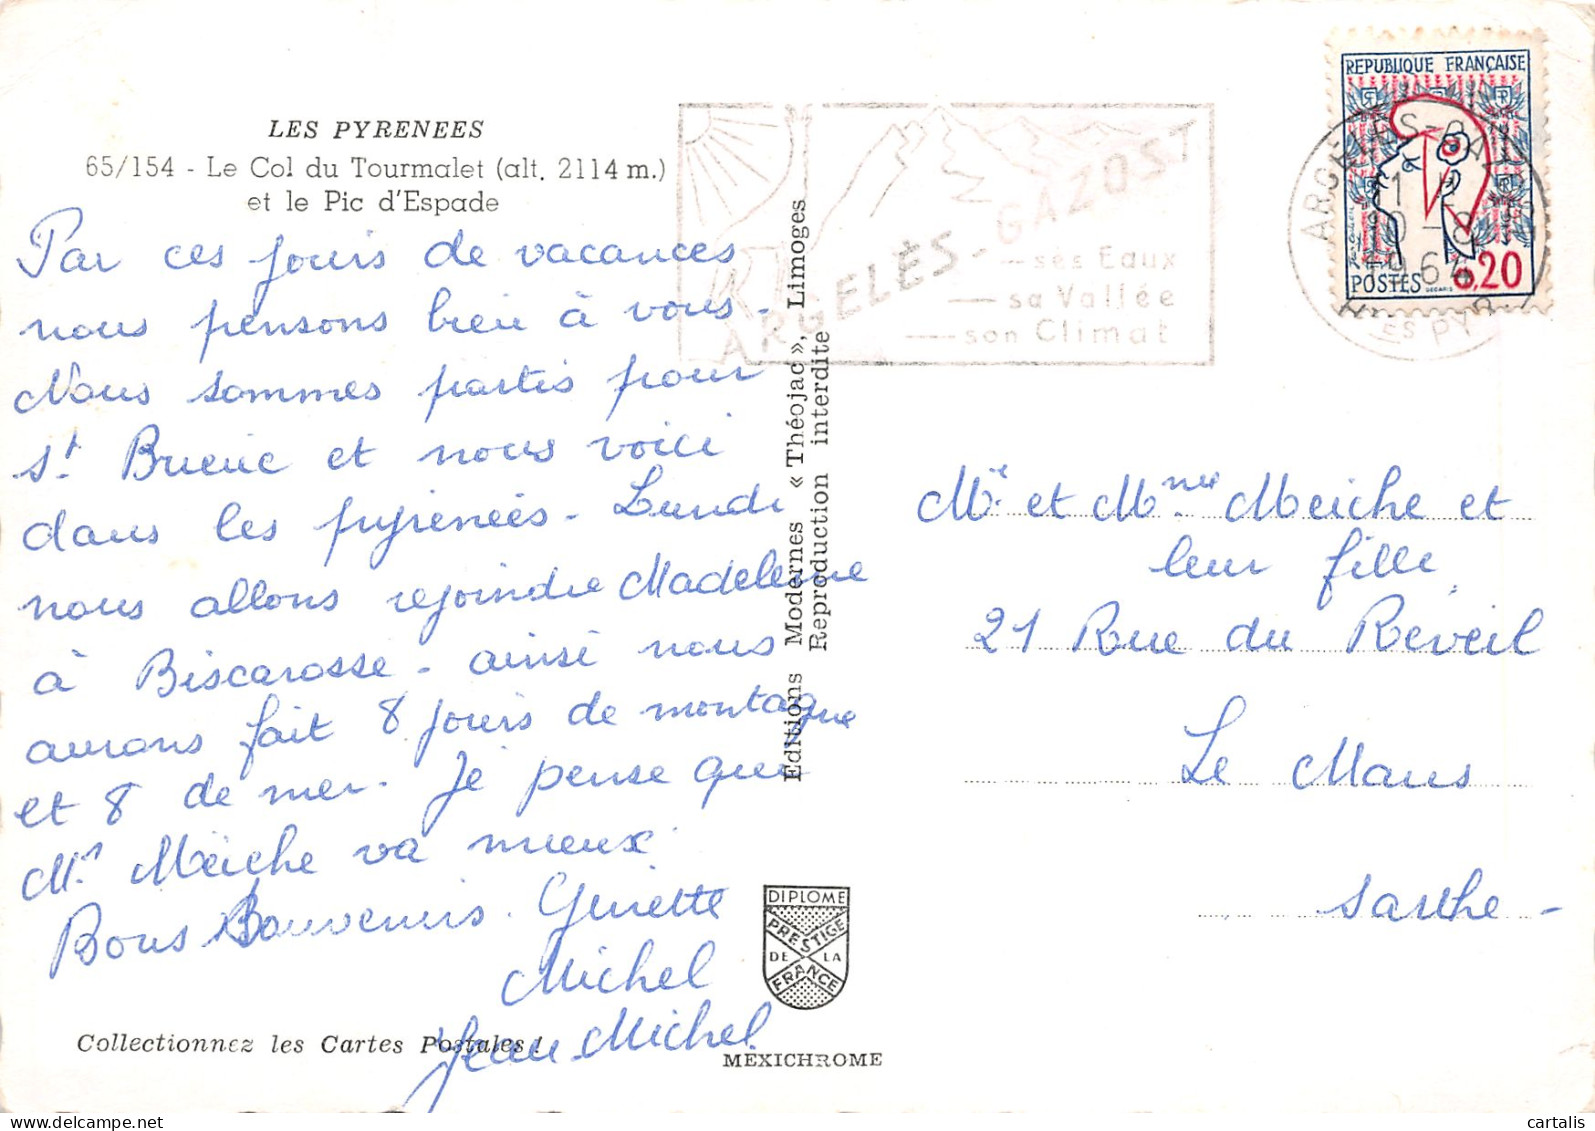 LES PYRENEES
65/154 - Le Col du Tourmalet (alt. 2114 m.)
et le Pic d'Espade
Par ces jours de vacances
nous pensons bien à vous.
Nous sommes partis pour
St. Brieuc et nous voici
dans les pyrénées - Lundi
nous allons rejoindre Madeleine
à Biscarosse - ainsi nous
aurons fait 8 jours de montagne
et 8 de mer. Je pense que
Mr Meiche va mieux.
Bons Souvenirs. Ginette
Michel
Jean-Michel
Collectionnez les Cartes Postales !
Editions Modernes « Théojac », Limoges
Reproduction interdite
DIPLOME
PRESTIGE
DE LA
FRANCE
MEXICHROME
ARGELÈS-GAZOST
ses Eaux
sa Vallée
son Climat
REPUBLIQUE FRANÇAISE
POSTES 0,20
DECARIS
ARGELES-GAZOST
1964
HTES PYR.
Mr. et Mme Meiche et
leur fille
21 Rue du Réveil
Le Mans
Sarthe -
cartalis